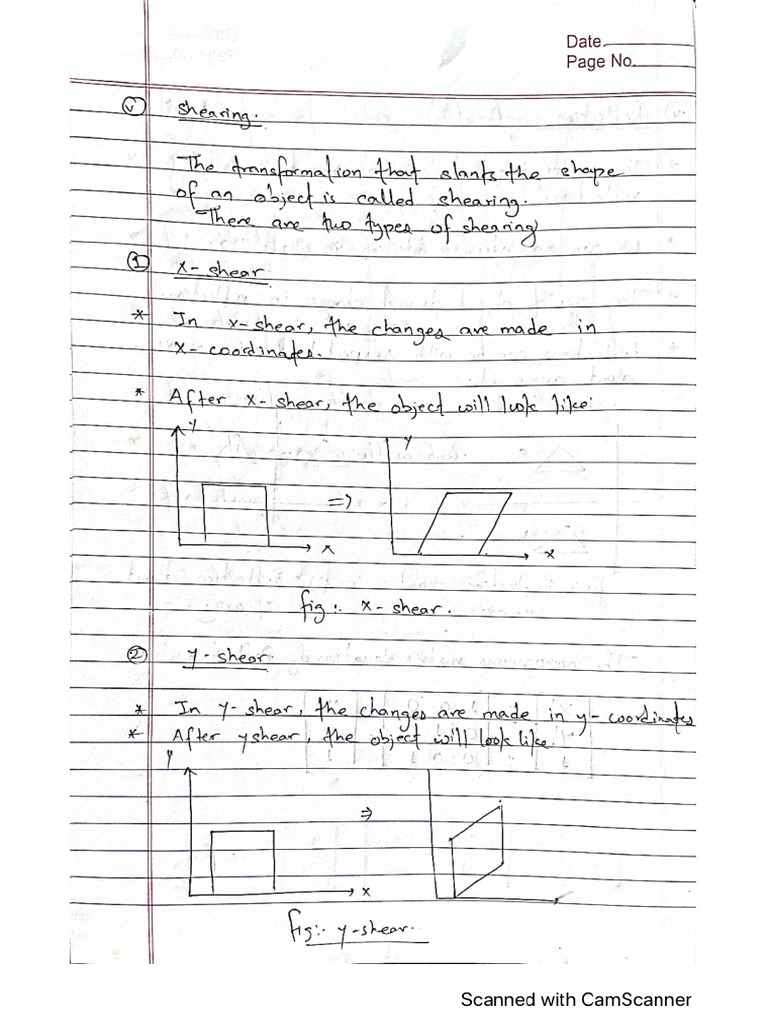 Date.
Page No.
(v) Shearing.
The transformation that slants the shape
of an object is called shearing.
There are two types of shearing
(1) x-shear
* In x-shear, the changes are made in
x-coordinates.
* After x-shear, the object will look like:
y
y
=>
x
x
fig:. x-shear.
(2) y-shear.
* In y-shear, the changes are made in y-coordinates
* After yshear, the object will look like.
y
=>
x
fig:- y-shear.
Scanned with CamScanner